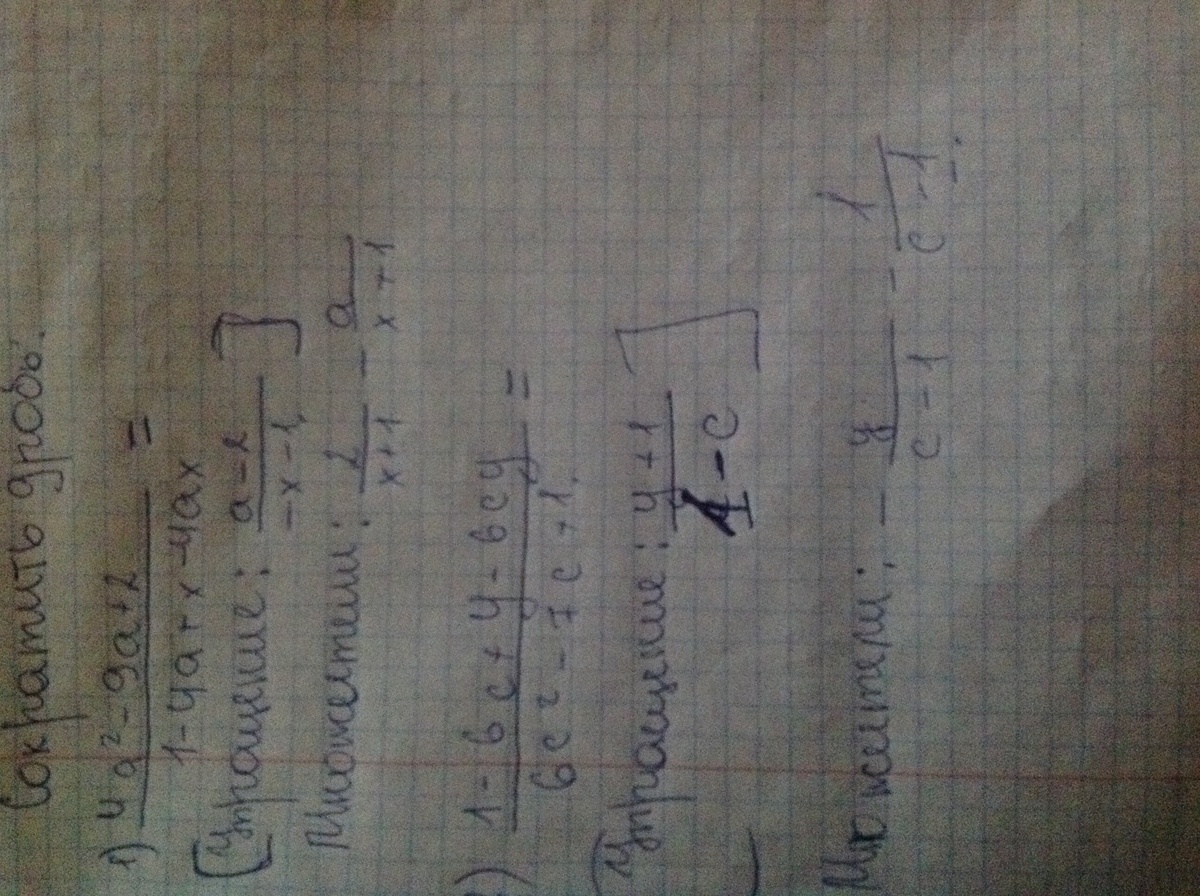 Сократить дробь:
1) 4a² - 9a + 2 / 1 - 4a + x - 4ax =
[Упрощение: a - 2 / -x - 1]
Множители: 2 / x + 1 - a / x + 1
) 1 - 6c + y - 6cy / 6c² - 7c + 1. =
[Упрощение: y + 1 / 1 - c]
Множители: - y / c - 1 - 1 / c - 1.